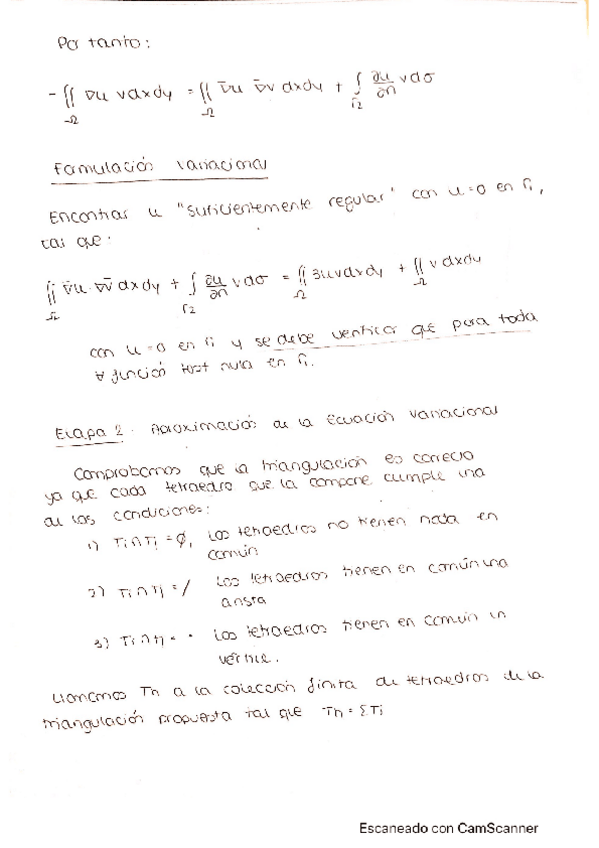 Por tanto:
- ∬ ∇u v dx dy = ∬ ∇̄u ∇̄v dx dy + ∫ ∂u/∂n v dσ
Ω Ω Γ2
Formulación variacional
Encontrar u "suficientemente regular" con u=0 en Γ1,
tal que:
∬ ∇̄u · ∇̄v dx dy + ∫ ∂u/∂n v dσ = ∬ 3uv dx dy + ∬ v dx dy
Ω Γ2 Ω Ω
con u=0 en Γ1 y se debe verificar que para toda
∀ función test nula en Γ1.
Etapa 2. Aproximación de la Ecuación Variacional
Comprobamos que la triangulación es correcta
ya que cada tetraedro que la compone cumple una
de las condiciones:
1) Ti∩Tj = ∅, los tetraedros no tienen nada en
común
2) Ti∩Tj = / los tetraedros tienen en común una
arista
3) Ti∩Tj = · los tetraedros tienen en común un
vértice.
Llamamos Th a la colección finita de tetraedros de la
triangulación propuesta tal que Th = ΣTi
Escaneado con CamScanner